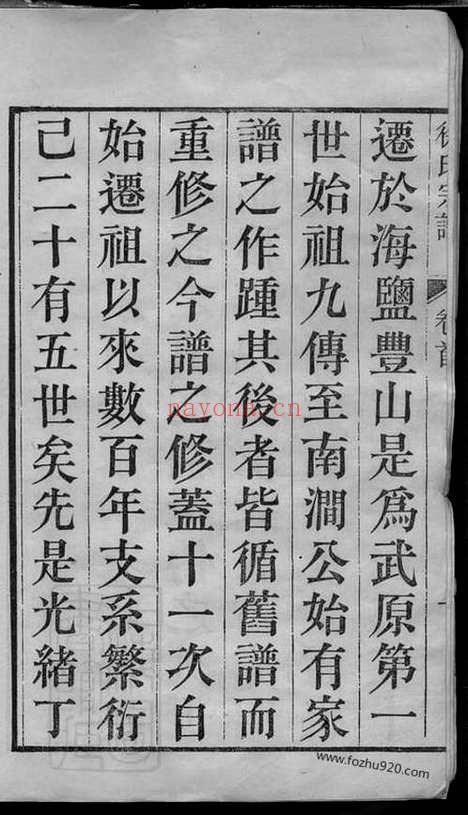 徐氏宗譜
卷首
遷於海鹽豐山是爲武原第一
世始祖九傳至南澗公始有家
譜之作踵其後者皆循舊譜而
重修之今譜之修蓋十一次自
始遷祖以來數百年支系繁衍
己二十有五世矣先是光緒丁
nayona.cn
www.fozhu920.com